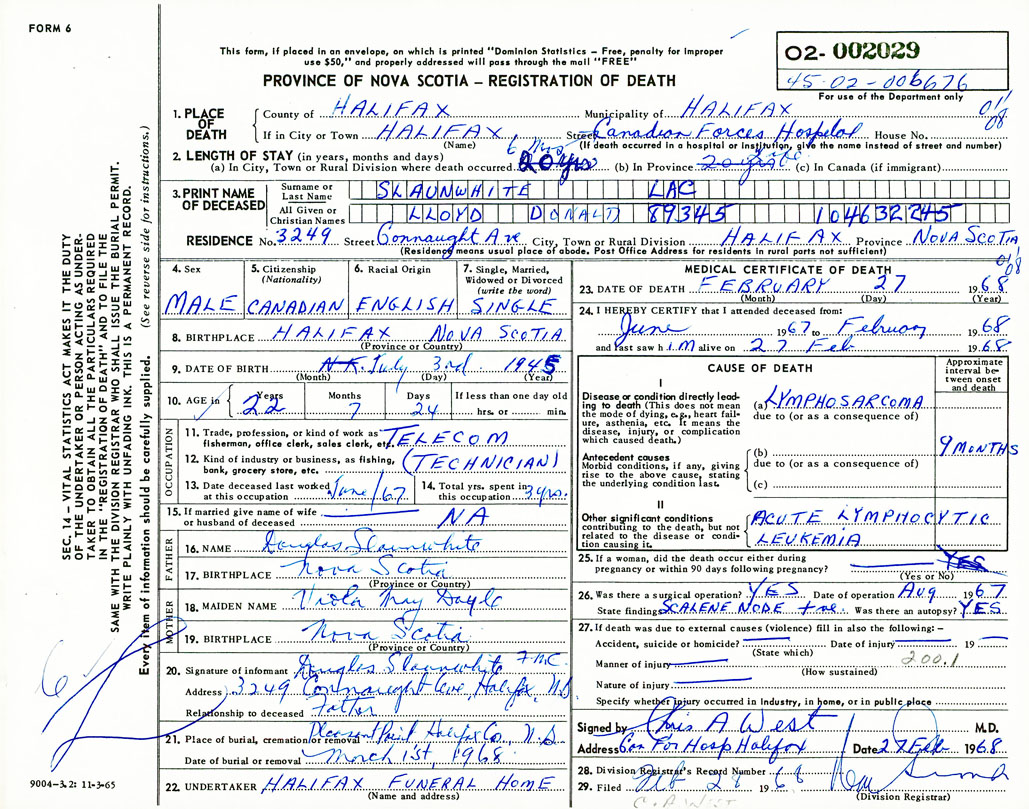 FORM 6
This form, if placed in an envelope, on which is printed "Dominion Statistics – Free, penalty for improper
use $50," and properly addressed will pass through the mail "FREE"
O2- 002029
45-02-006676
For use of the Department only
PROVINCE OF NOVA SCOTIA – REGISTRATION OF DEATH
011/08
1. PLACE OF DEATH County of HALIFAX Municipality of HALIFAX
If in City or Town HALIFAX Street Canadian Forces Hospital House No.
(Name) (If death occurred in a hospital or institution, give the name instead of street and number)
2. LENGTH OF STAY (in years, months and days)
(a) In City, Town or Rural Division where death occurred 20 yrs (b) In Province (c) In Canada (if immigrant)
3. PRINT NAME OF DECEASED Surname or Last Name SLAUNWHITE LAC
All Given or Christian Names LLOYD DONALD 89345 104632245
RESIDENCE No. 3249 Street Connaught Ave City, Town or Rural Division HALIFAX Province NOVA SCOTIA
(Residence means usual place of abode. Post Office Address for residents in rural parts not sufficient)
011/08
4. Sex MALE
5. Citizenship (Nationality) CANADIAN
6. Racial Origin ENGLISH
7. Single, Married, Widowed or Divorced (write the word) SINGLE
8. BIRTHPLACE HALIFAX NOVA SCOTIA
(Province or Country)
9. DATE OF BIRTH N.K. July 3rd 1945
(Month) (Day) (Year)
10. AGE in Years 22 Months 7 Days 24 If less than one day old hrs. or min.
OCCUPATION
11. Trade, profession, or kind of work as fisherman, office clerk, sales clerk, etc. TELECOM
12. Kind of industry or business, as fishing, bank, grocery store, etc. (TECHNICIAN)
13. Date deceased last worked at this occupation June/67 14. Total yrs. spent in this occupation 3 yrs.
15. If married give name of wife or husband of deceased NA
FATHER
16. NAME Douglas Slaunwhite
17. BIRTHPLACE Nova Scotia
(Province or Country)
MOTHER
18. MAIDEN NAME Viola May Doyle
19. BIRTHPLACE Nova Scotia
(Province or Country)
20. Signature of informant Douglas Slaunwhite
Address 3249 Connaught Ave, Halifax, N.S.
Relationship to deceased Father
21. Place of burial, cremation or removal Pleasant Point Halifax Co., N.S.
Date of burial or removal March 1st, 1968
22. UNDERTAKER HALIFAX FUNERAL HOME
(Name and address)
MEDICAL CERTIFICATE OF DEATH
23. DATE OF DEATH FEBRUARY 27 1968
(Month) (Day) (Year)
24. I HEREBY CERTIFY that I attended deceased from:
June 1967 to February 1968
and last saw him alive on 27 Feb 1968
CAUSE OF DEATH
Approximate interval between onset and death
I
Disease or condition directly leading to death (This does not mean the mode of dying, e.g., heart failure, asthenia, etc. It means the disease, injury, or complication which caused death.)
(a) LYMPHOSARCOMA
due to (or as a consequence of)
9 MONTHS
Antecedent causes
Morbid conditions, if any, giving rise to the above cause, stating the underlying condition last.
(b)
due to (or as a consequence of)
(c)
II
Other significant conditions contributing to the death, but not related to the disease or condition causing it.
ACUTE LYMPHOCYTIC
LEUKEMIA
25. If a woman, did the death occur either during pregnancy or within 90 days following pregnancy? YES
(Yes or No)
26. Was there a surgical operation? YES Date of operation Aug 1967
State findings SCALENE NODE +ve. Was there an autopsy? YES
27. If death was due to external causes (violence) fill in also the following: –
Accident, suicide or homicide? Date of injury 19
(State which)
Manner of injury 200.1
(How sustained)
Nature of injury
Specify whether injury occurred in Industry, in home, or in public place
Signed by Chris A West M.D.
Address Can For Hosp Halifax Date 27 Feb 1968
28. Division Registrar's Record Number
29. Filed Feb 28 1968
(Division Registrar)
C. A WEST
SEC. 14 – VITAL STATISTICS ACT MAKES IT THE DUTY
OF THE UNDERTAKER OR PERSON ACTING AS UNDER-
TAKER TO OBTAIN ALL THE PARTICULARS REQUIRED
IN THE "REGISTRATION OF DEATH" AND TO FILE THE
SAME WITH THE DIVISION REGISTRAR WHO SHALL ISSUE THE BURIAL PERMIT.
WRITE PLAINLY WITH UNFADING INK. THIS IS A PERMANENT RECORD.
Every item of information should be carefully supplied. (See reverse side for instructions.)
9004–3.2: 11-3-65